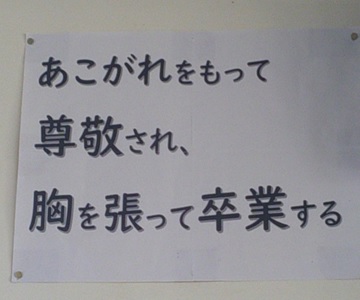 あこがれをもって
尊敬され、
胸を張って卒業する